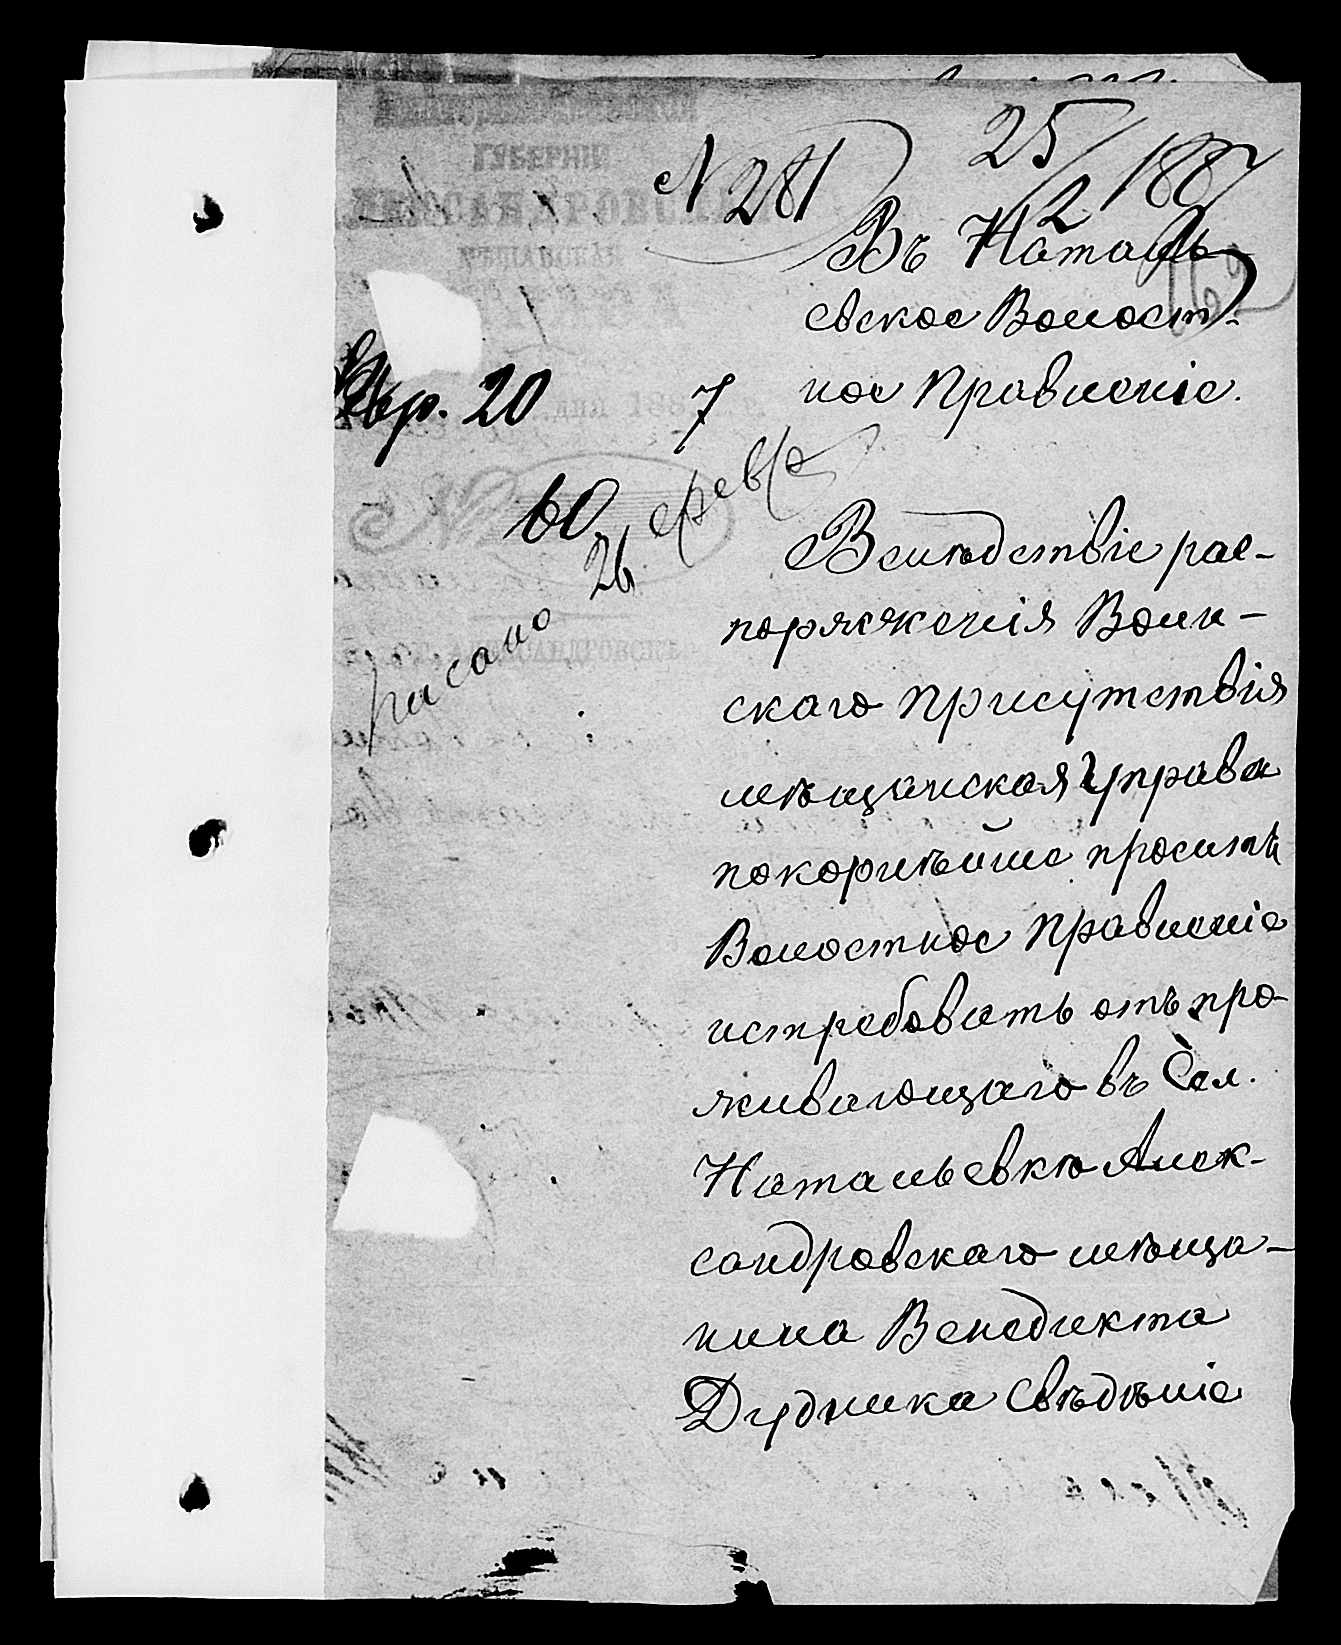 ЕКАТЕРИНОСЛАВСКОЙ
ГУБЕРНІИ
АЛЕКСАНДРОВСКАЯ
МѢЩАНСКАЯ
УПРАВА
Февр. 20 дня 1887 г.
№ 60
Г. АЛЕКСАНДРОВСКЪ
писано 26 февр
№ 281
25/2 1887
162
Въ Наталь-
евское Волост-
ное Правленіе.
Вслѣдствіе рас-
поряженія Воин-
скаго Присутствія
мѣщанская Управа
покорнѣйше проситъ
Волостное Правленіе
истребовать отъ про-
живающаго въ Сел.
Натальевкѣ Алек-
сандровскаго мѣща-
нина Венедикта
Дудника Свѣдѣніе